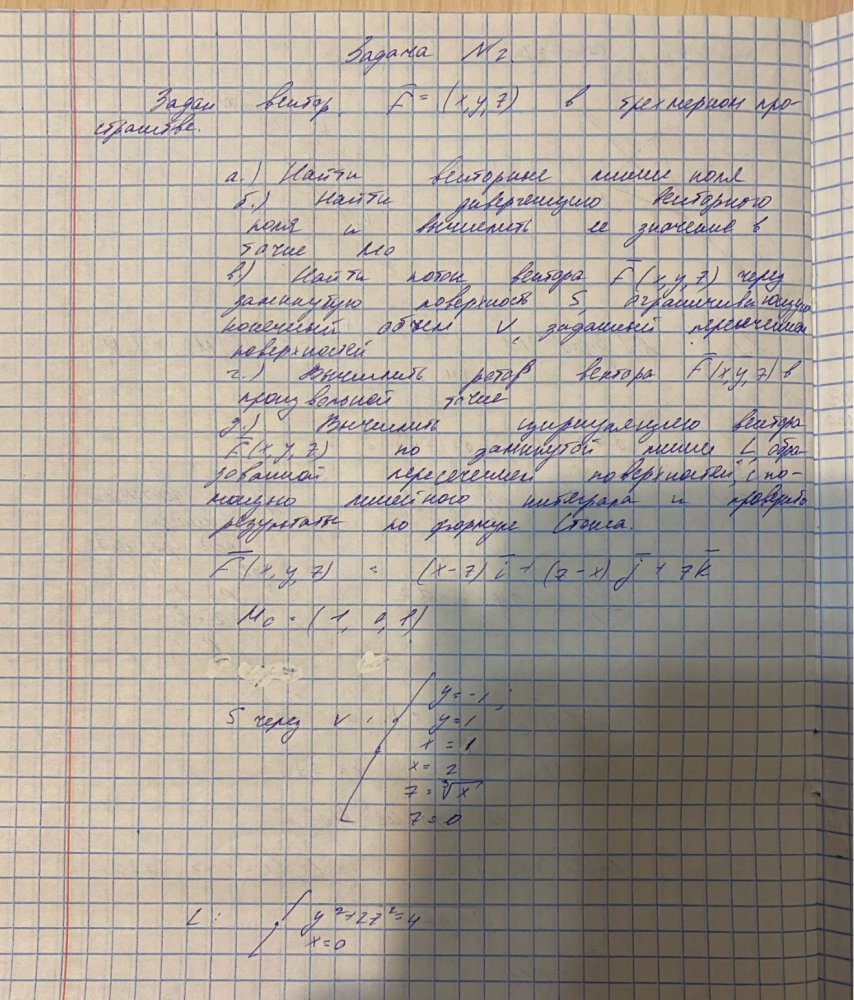 Задача №2.
Задан вектор F̅ = (x,y,z) в трехмерном про-
странстве.
а.) Найти векторные линии поля
б.) Найти дивергенцию векторного
поля и вычислить ее значение в
точке M₀
в) Найти поток вектора F̅(x,y,z) через
замкнутую поверхность S, ограничивающую
конечный объем V, заданный пересечением
поверхностей
г.) Вычислить ротор вектора F̅(x,y,z) в
произвольной точке
д.) Вычислить циркуляцию вектора
F̅(x,y,z) по замкнутой линии L, обра-
зованной пересечением поверхностей, с по-
мощью линейного интеграла и проверить
результаты по формуле Стокса.
F̅(x,y,z) = (x-z) i̅ + (z-x) j̅ + z k̅
M₀ = (1, 0, 1)
S через V:
y=-1;
y=1
x=1
x=2
z=∛x
z=0
L:
y²+2z²=4
x=0